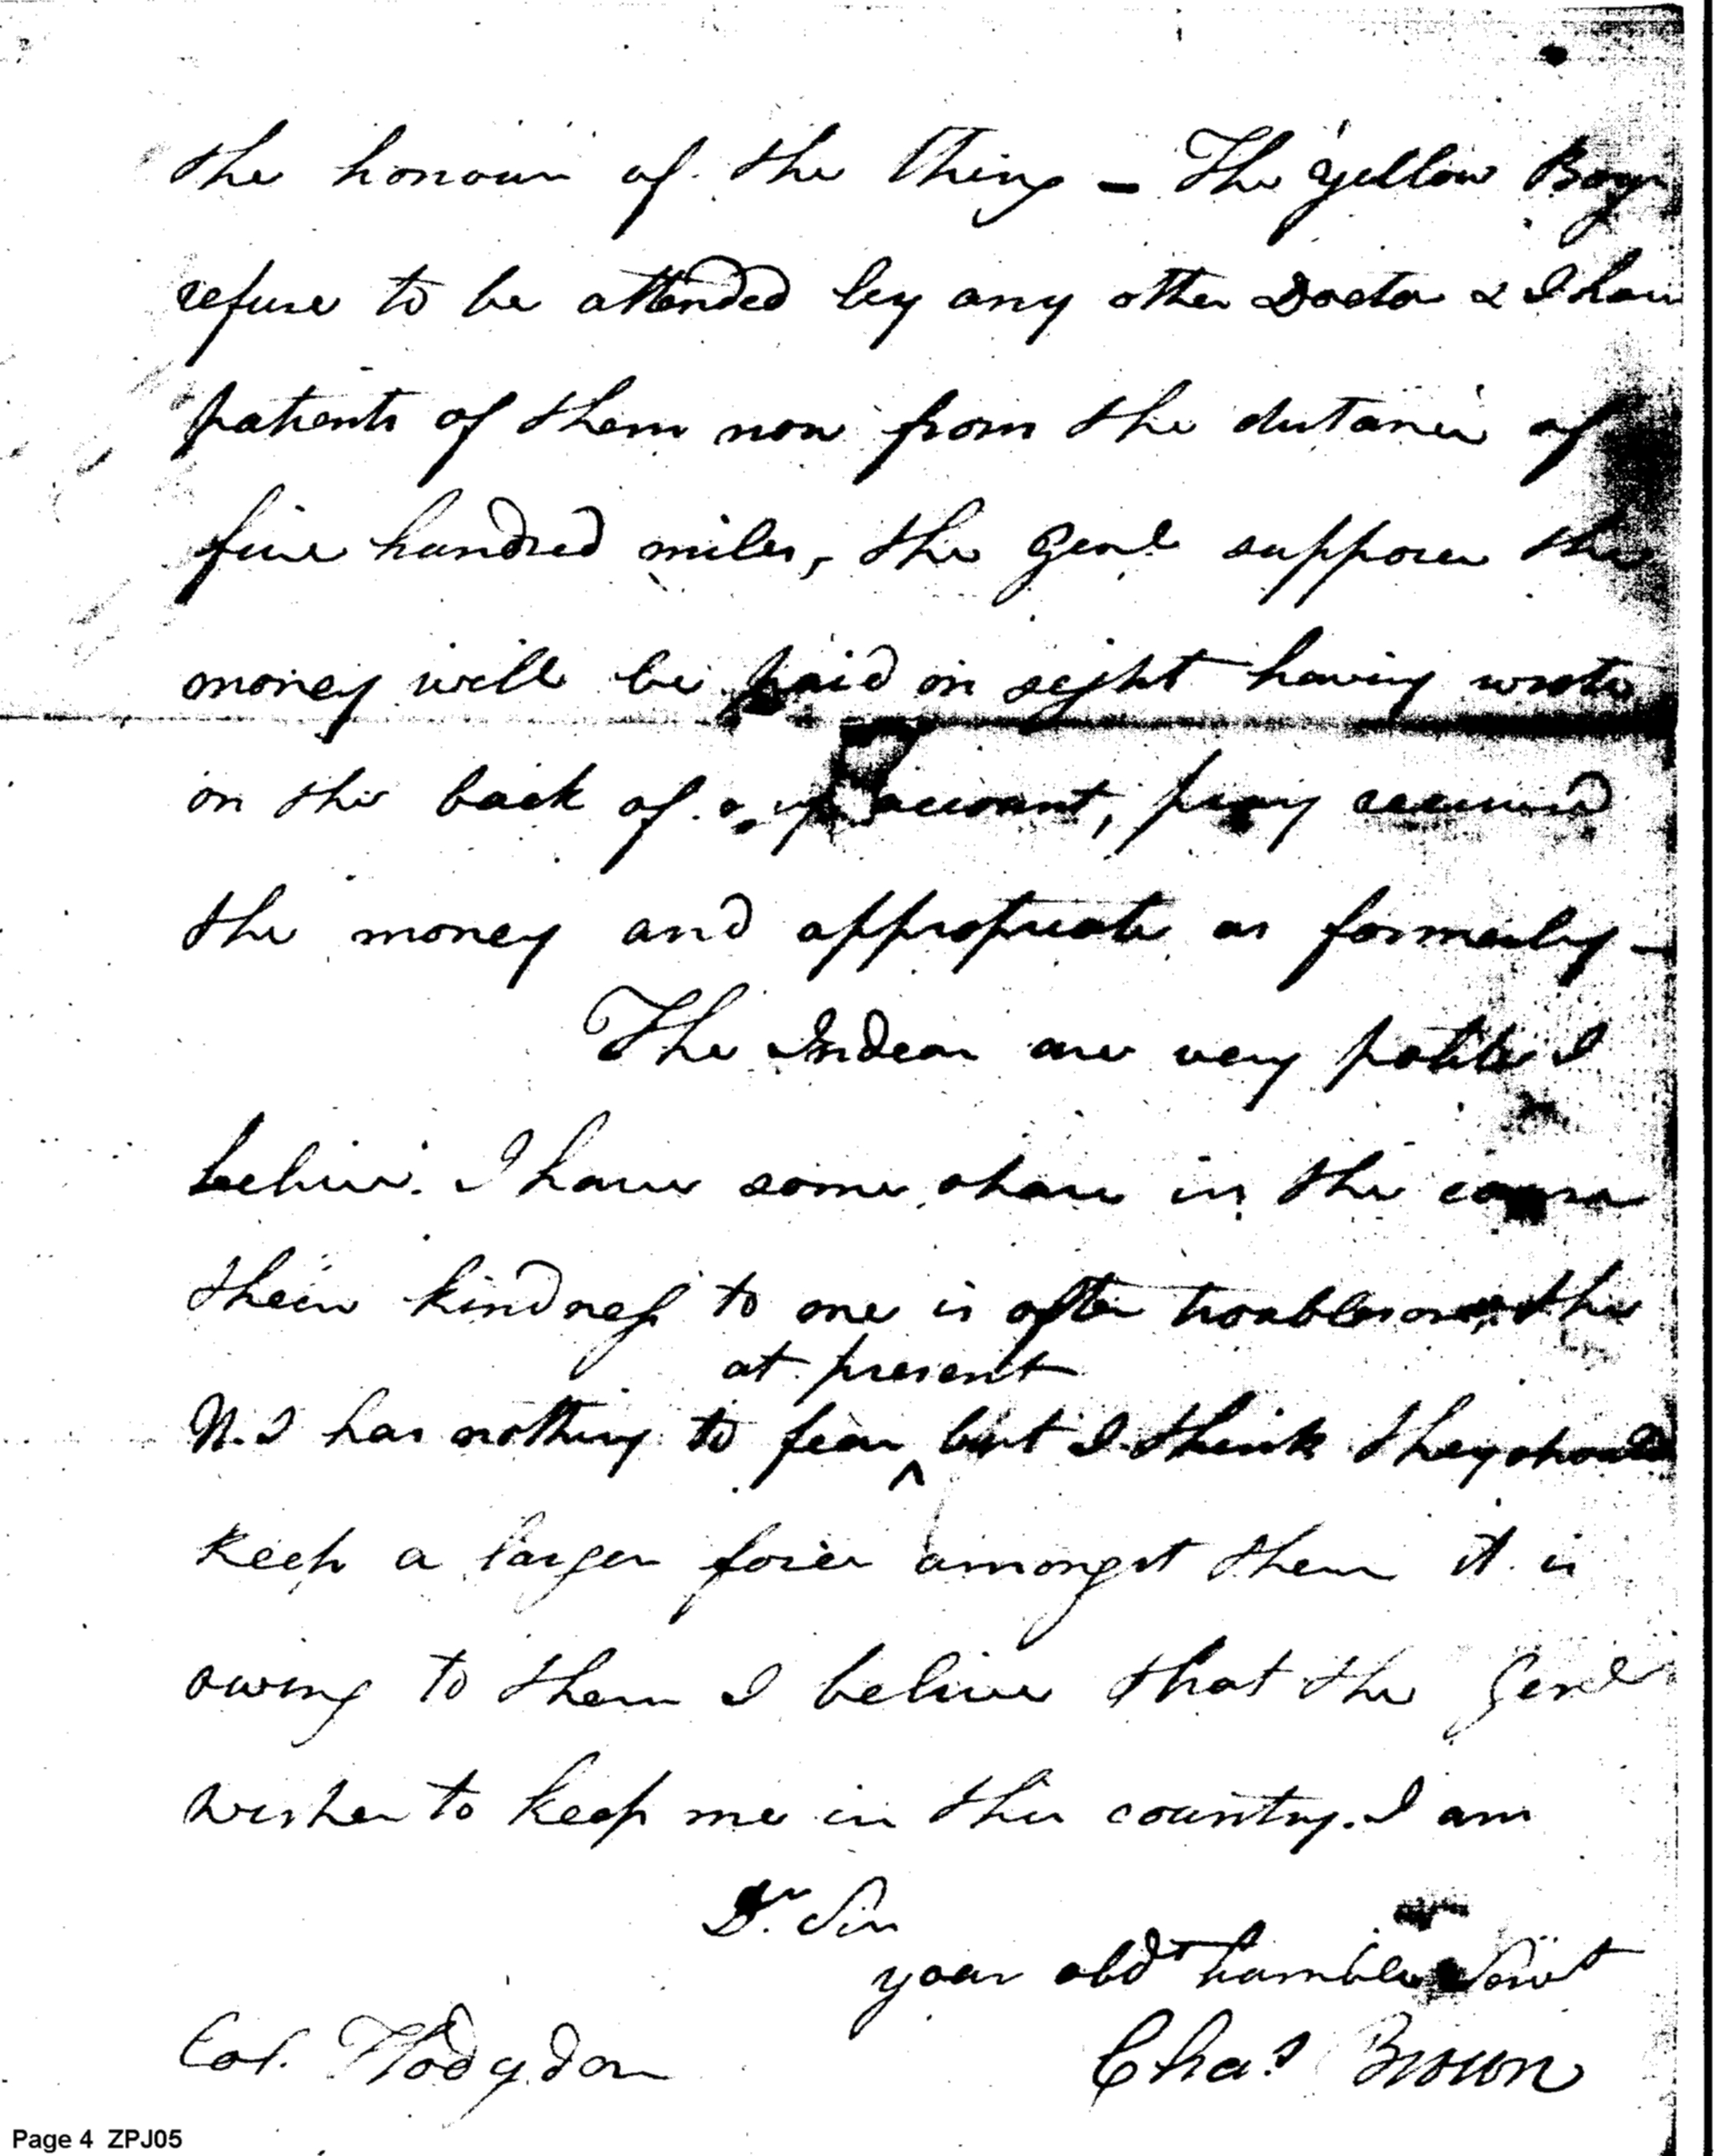 the honour of the thing – The yellow Boys
refuse to be attended by any other Doctor & I have
patients of them now from the distance of
five hundred miles, the Genl supposes the
money will be paid on sight having wrote
on the back of my account, pray receive
the money and appropriate as formerly –
The Indean are very polite I
believe. I have some share in the cause
their kindness to me is often troublesome, the
at present
N. I has nothing to fear ^ but I think they should
keep a larger force amongst them it is
owing to them I believe that the Genl
wishes to keep me in this country. I am
Dr. Sir
your obdt humble Servt
Col. Hodgdon
Chas Brown
Page 4 ZPJ05